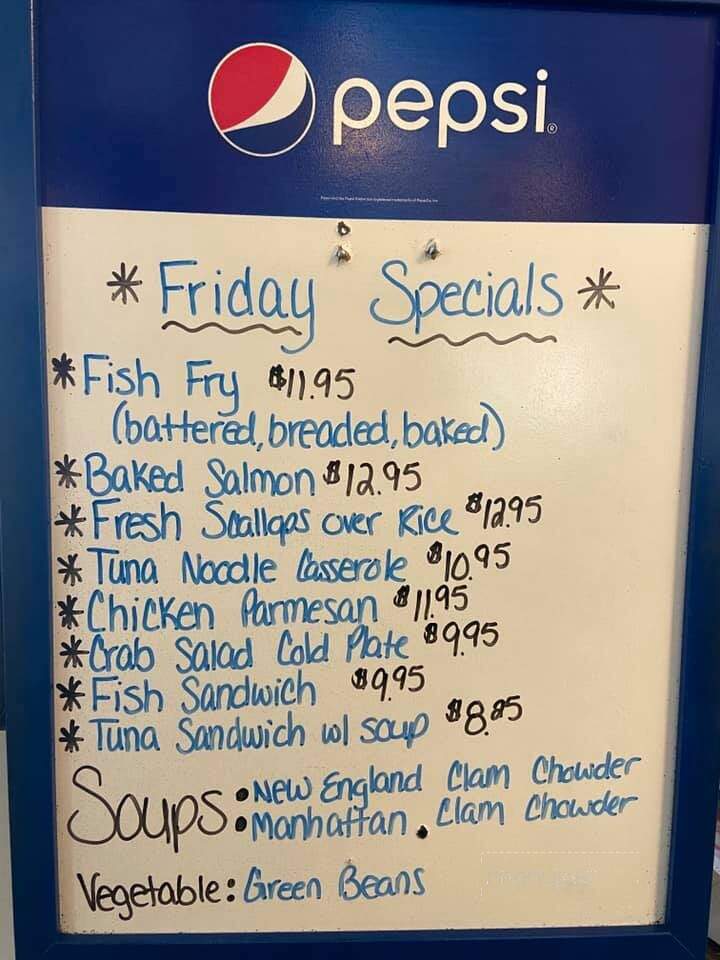 pepsi®
* Friday Specials *
* Fish Fry $11.95
(battered, breaded, baked)
* Baked Salmon $12.95
* Fresh Scallops over Rice $12.95
* Tuna Noodle Casserole $10.95
* Chicken Parmesan $11.95
* Crab Salad Cold Plate $9.95
* Fish Sandwich $9.95
* Tuna Sandwich w/ soup $8.25
Soups: • New England Clam Chowder
• Manhattan Clam Chowder
Vegetable: Green Beans